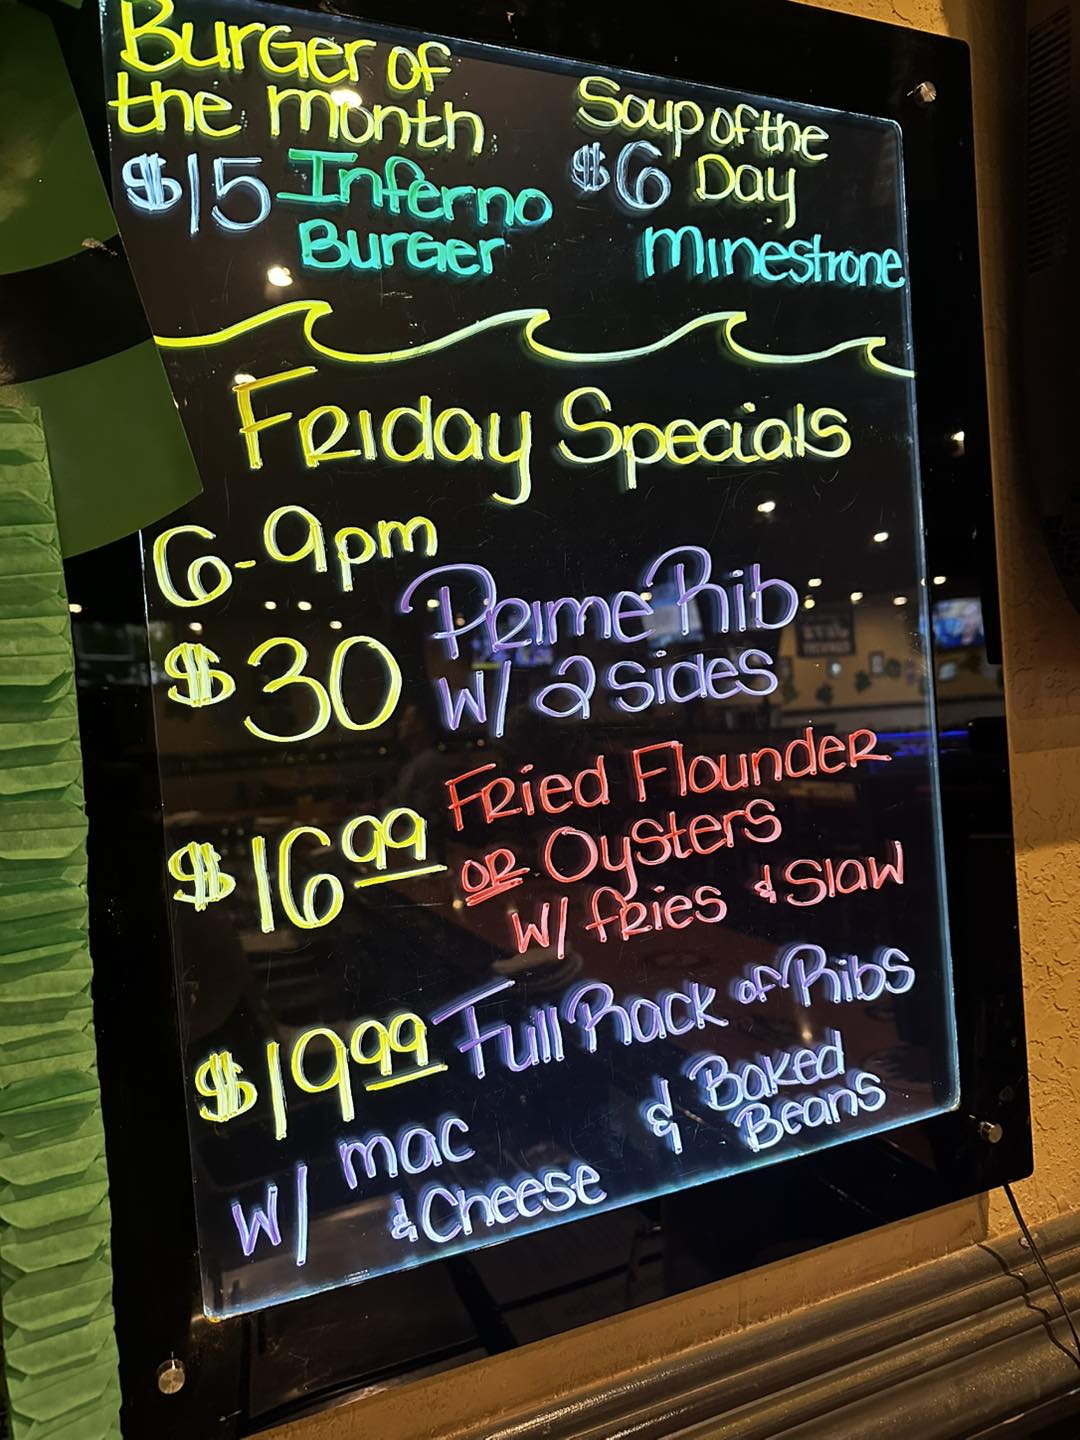 Burger of
the month
$15 Inferno
Burger
Soup of the
$6 Day
minestrone
Friday Specials
6-9pm
$30 Prime Rib
w/ 2 sides
$16.99 Fried Flounder
or Oysters
w/ fries & Slaw
$19.99 Full Rack of Ribs
w/ mac & Cheese
& Baked Beans